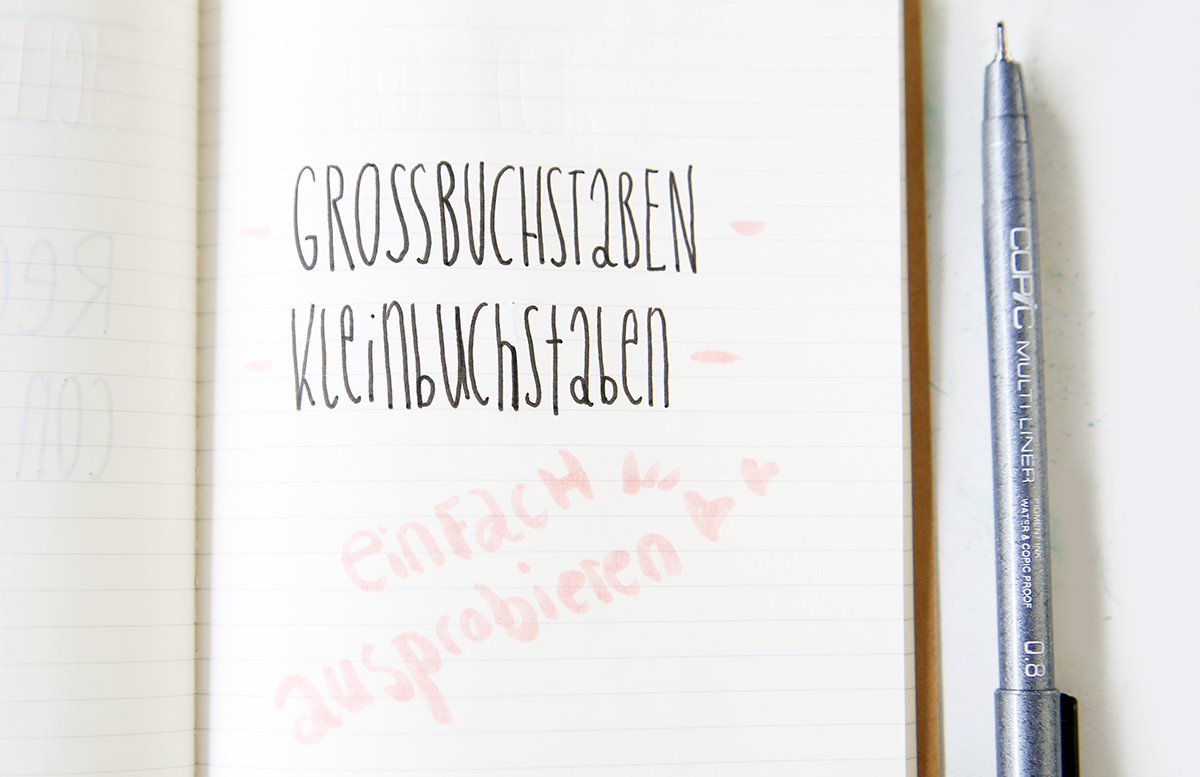 GROSSBUCHSTaBEN
kleinbuchstaben
einfach
ausprobieren
COPIC MULTI LINER
PIGMENT INK
WATER & COPIC PROOF
0.8